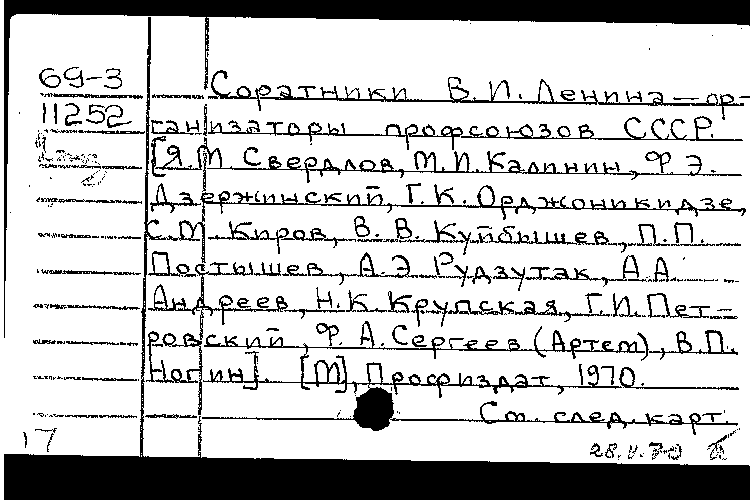 69-3
11252
Соратники В.И. Ленина — ор-
ганизаторы профсоюзов СССР.
[Я.М Свердлов, М.И. Калинин, Ф.Э.
Дзержинский, Г.К. Орджоникидзе,
С.М Киров, В.В. Куйбышев, П.П.
Постышев, А.Э Рудзутак, А.А.
Андреев, Н.К. Крупская, Г.И. Пет-
ровский, Ф.А. Сергеев (Артем), В.П.
Ногин]. [М], Профиздат, 1970.
См. след. карт.
17
28.V.70